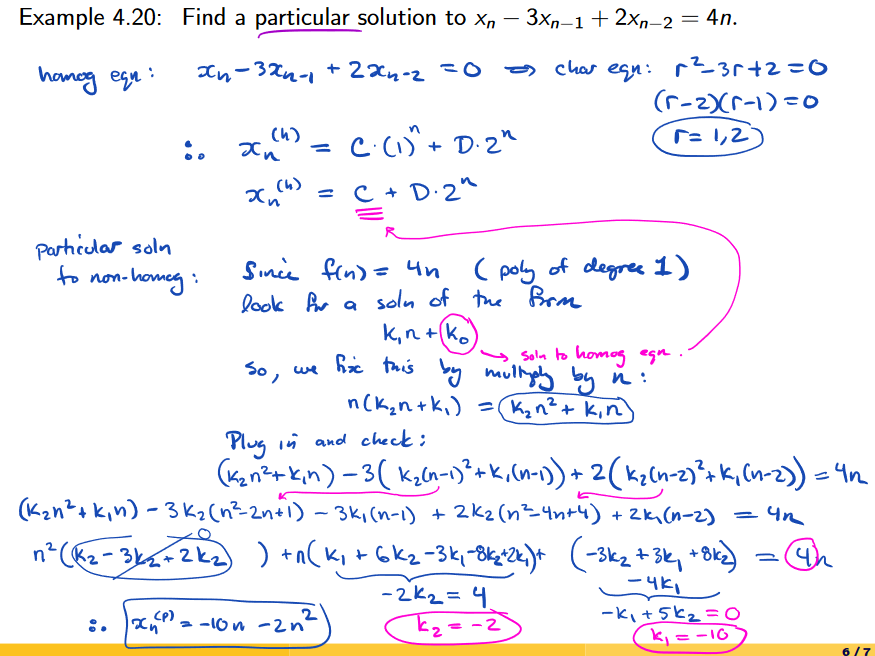 Example 4.20: Find a particular solution to xₙ − 3xₙ₋₁ + 2xₙ₋₂ = 4n.
homog eqn: xₙ − 3xₙ₋₁ + 2xₙ₋₂ = 0 ⇒ char eqn: r² − 3r + 2 = 0
(r−2)(r−1) = 0
r = 1, 2
∴ xₙ⁽ʰ⁾ = C·(1)ⁿ + D·2ⁿ
xₙ⁽ʰ⁾ = C + D·2ⁿ
Particular soln
to non-homog:
Since f(n) = 4n (poly of degree 1)
look for a soln of the form
k₁n + k₀
→ soln to homog eqn.
So, we fix this by multiply by n:
n(k₂n + k₁) = k₂n² + k₁n
Plug in and check:
(k₂n² + k₁n) − 3(k₂(n−1)² + k₁(n−1)) + 2(k₂(n−2)² + k₁(n−2)) = 4n
(k₂n² + k₁n) − 3k₂(n² − 2n + 1) − 3k₁(n−1) + 2k₂(n² − 4n + 4) + 2k₁(n−2) = 4n
0
n²(k₂ − 3k₂ + 2k₂) + n(k₁ + 6k₂ − 3k₁ − 8k₂ + 2k₁) + (−3k₂ + 3k₁ + 8k₂) = 4n
−4k₁
−2k₂ = 4
−k₁ + 5k₂ = 0
∴ xₙ⁽ᵖ⁾ = −10n − 2n²
k₂ = −2
k₁ = −10
6 / 7